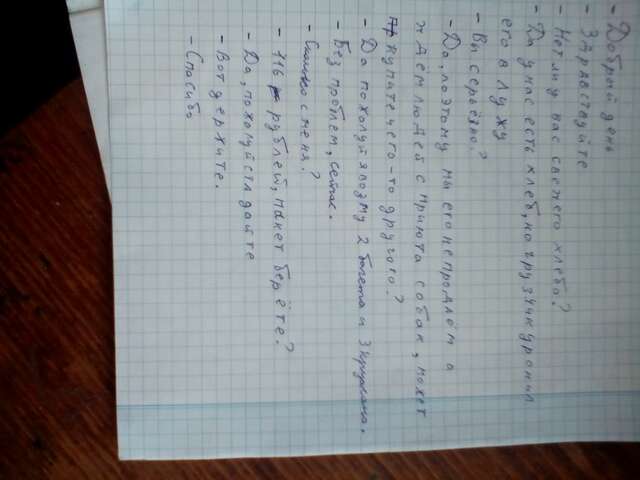 - Добрый день
- Здравствуйте
- Нет ли у вас свежего хлеба?
- Да у нас есть хлеб, но грузчик уронил
его в лужу
- Вы серьёзно?
- Да, поэтому мы его не продаём а
ждём людей с приюта собак, может
купите чего-то другого?
- Да пожалуй я возму 2 багета и 3 круассана.
- Без проблем, сейчас.
- Сколько с меня?
- 716 рублей, пакет берёте?
- Да, пожалуйста дайте
- Вот держите.
- Спасибо